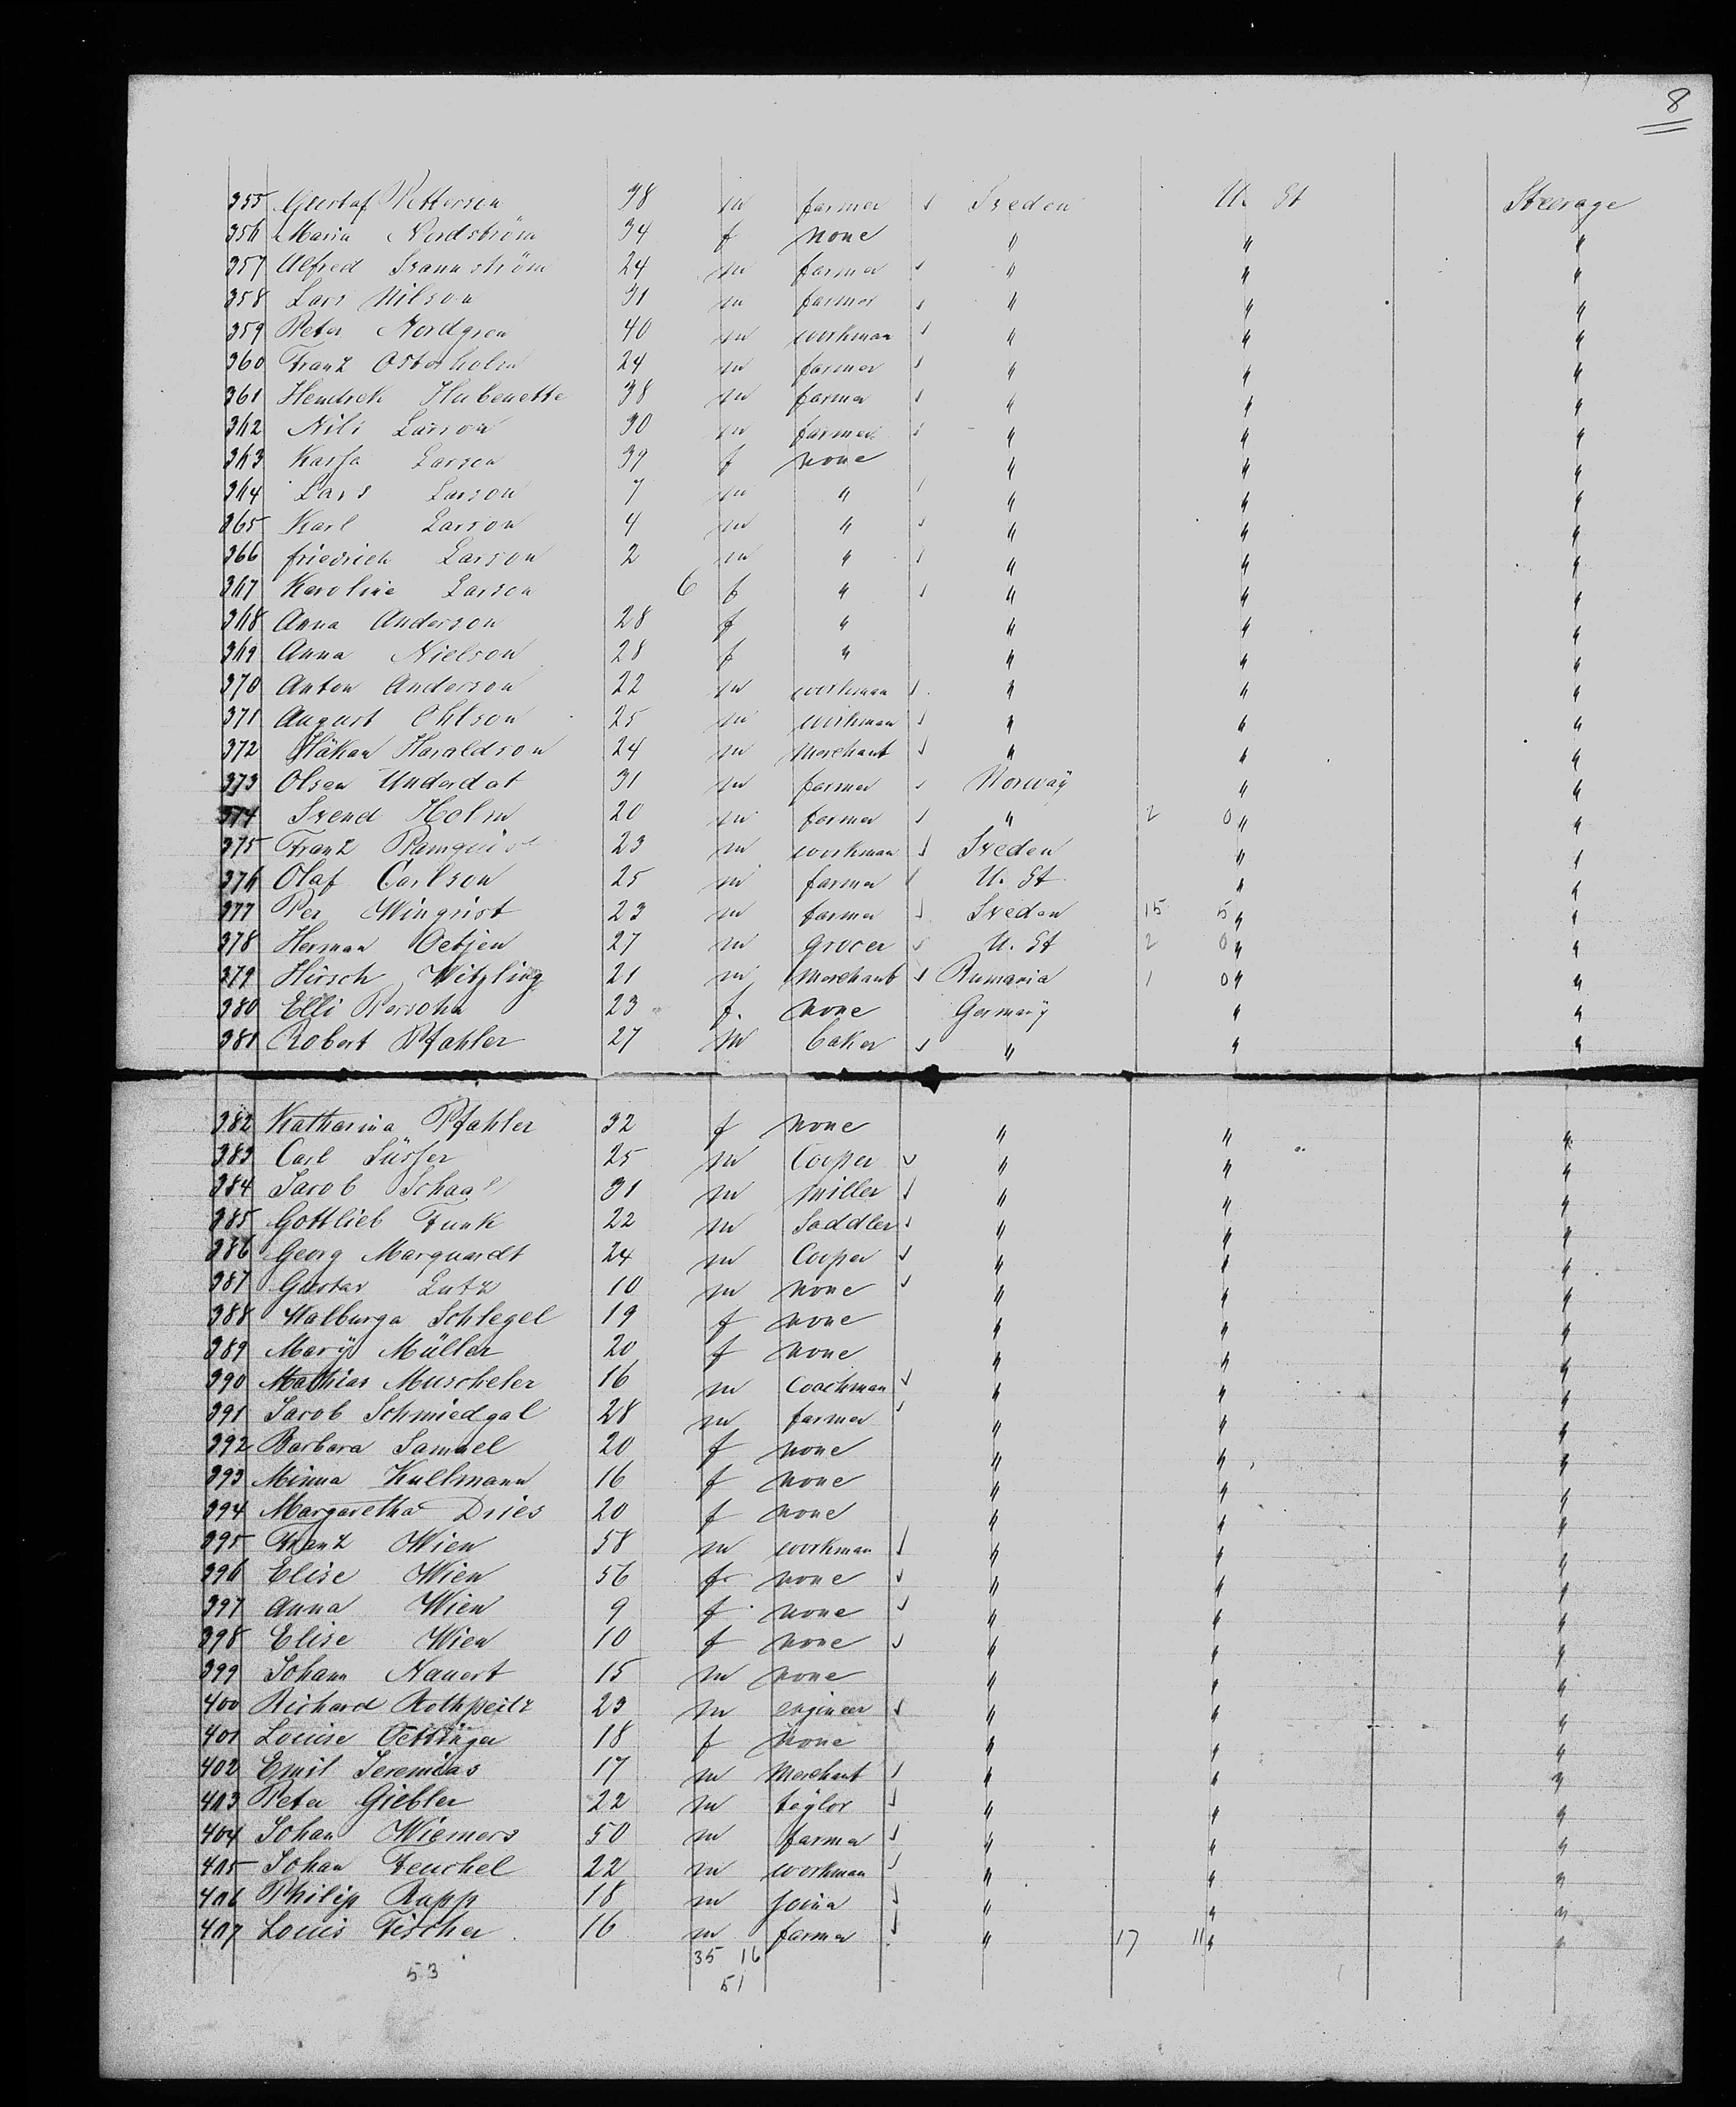 8
355 Gustaf Petterson 38 m farmer ✓ Sveden U. St Steerage
356 Maria Nordström 34 f none " " "
357 Alfred Srannström 24 m farmer ✓ " " "
358 Lars Nilson 31 m farmer ✓ " " "
359 Peter Nordgren 40 m workman ✓ " " "
360 Franz Osterholm 24 m farmer ✓ " " "
361 Hendrek Hubenette 38 m farmer ✓ " " "
362 Nils Larson 30 m farmer ✓ " " "
363 Karsa Larson 39 f none " " "
364 Lars Larson 7 m " ✓ " " "
365 Karl Larson 4 m " ✓ " " "
366 friedrich Larson 2 m " ✓ " " "
367 Karoline Larson 6 f " ✓ " " "
368 Anna Anderson 28 f " " " "
369 Anna Nielson 28 f " " " "
370 Anton Anderson 22 m workman ✓ " " "
371 August Ohlson 25 m workman ✓ " " "
372 Håkan Haraldson 24 m Merchant ✓ " " "
373 Olsen Underdat 31 m farmer ✓ Norway " "
374 Svend Holm 20 m farmer ✓ " 2 0 " "
375 Franz Ramquist 23 m workman ✓ Sveden " "
376 Olaf Carlson 25 m farmer ✓ U. St " "
377 Per Winqvist 23 m farmer ✓ Sveden 15 5 " "
378 Herman Oetjen 27 m grocer ✓ U. St 2 0 " "
379 Hirsch Witzling 21 m Merchant ✓ Rumania 1 0 " "
380 Elli Persohn 23 f. none Germany " "
381 Robert Pfahler 27 m baker ✓ " " "
382 Katharina Pfahler 32 f none " " "
383 Carl Süsser 25 m Cooper ✓ " " "
384 Jacob Schaal 31 m miller ✓ " " "
385 Gottlieb Funk 22 m Saddler ✓ " " "
386 Georg Marquardt 24 m Cooper ✓ " " "
387 Gustav Lutz 10 m none ✓ " " "
388 Walburga Schlegel 19 f none " " "
389 Mary Müller 20 f none " " "
390 Mathias Muscheler 16 m Coachman ✓ " " "
391 Jacob Schmiedgal 28 m farmer ✓ " " "
392 Barbara Samuel 20 f none " " "
393 Minna Kullmann 16 f none " " "
394 Margaretha Dries 20 f none " " "
395 Franz Wien 58 m workman ✓ " " "
396 Elise Wien 56 f none ✓ " " "
397 Anna Wien 9 f none ✓ " " "
398 Elise Wien 10 f none ✓ " " "
399 Johann Nauert 15 m none " " "
400 Richard Rothpeltz 23 m engineer ✓ " " "
401 Louise Oettinger 18 f none " " "
402 Emil Jeremias 17 m Merchant ✓ " " "
403 Peter Giebler 22 m taylor ✓ " " "
404 Johan Wiemers 50 m farmer ✓ " " "
405 Johan Feuchel 22 m workman ✓ " " "
406 Philip Rupp 18 m joina ✓ " " "
407 Louis Fischer 16 m farmer ✓ " 17 11 " "
35 16
53 51